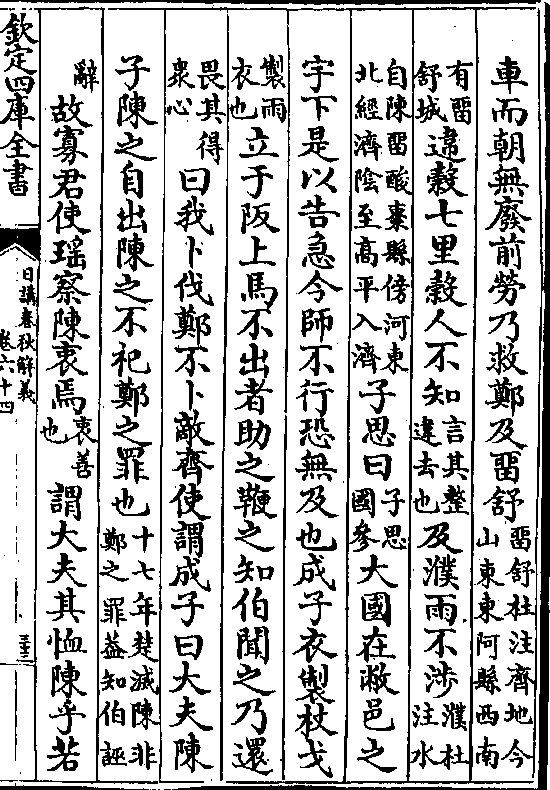 車而朝無廢前勞乃救鄭及畱舒畱舒杜注齊地今山東東阿縣西南
有畱舒城違穀七里穀人不知言其整違去也及濮雨不渉濮杜注水
自陳畱酸棗縣傍河東北經濟陰至高平入濟子思曰子思國參大國在敝邑之
宇下是以告急今師不行恐無及也成子衣製杖戈
製雨衣也立于阪上馬不出者助之鞭之知伯聞之乃還
畏其得衆心曰我卜伐鄭不卜敵齊使謂成子曰大夫陳
子陳之自出陳之不祀鄭之罪也十七年楚滅陳非鄭之罪葢知伯誣
辭故寡君使瑤察陳衷焉衷善也謂大夫其恤陳乎若
欽定四庫全書
日講春秋解義
卷六十四